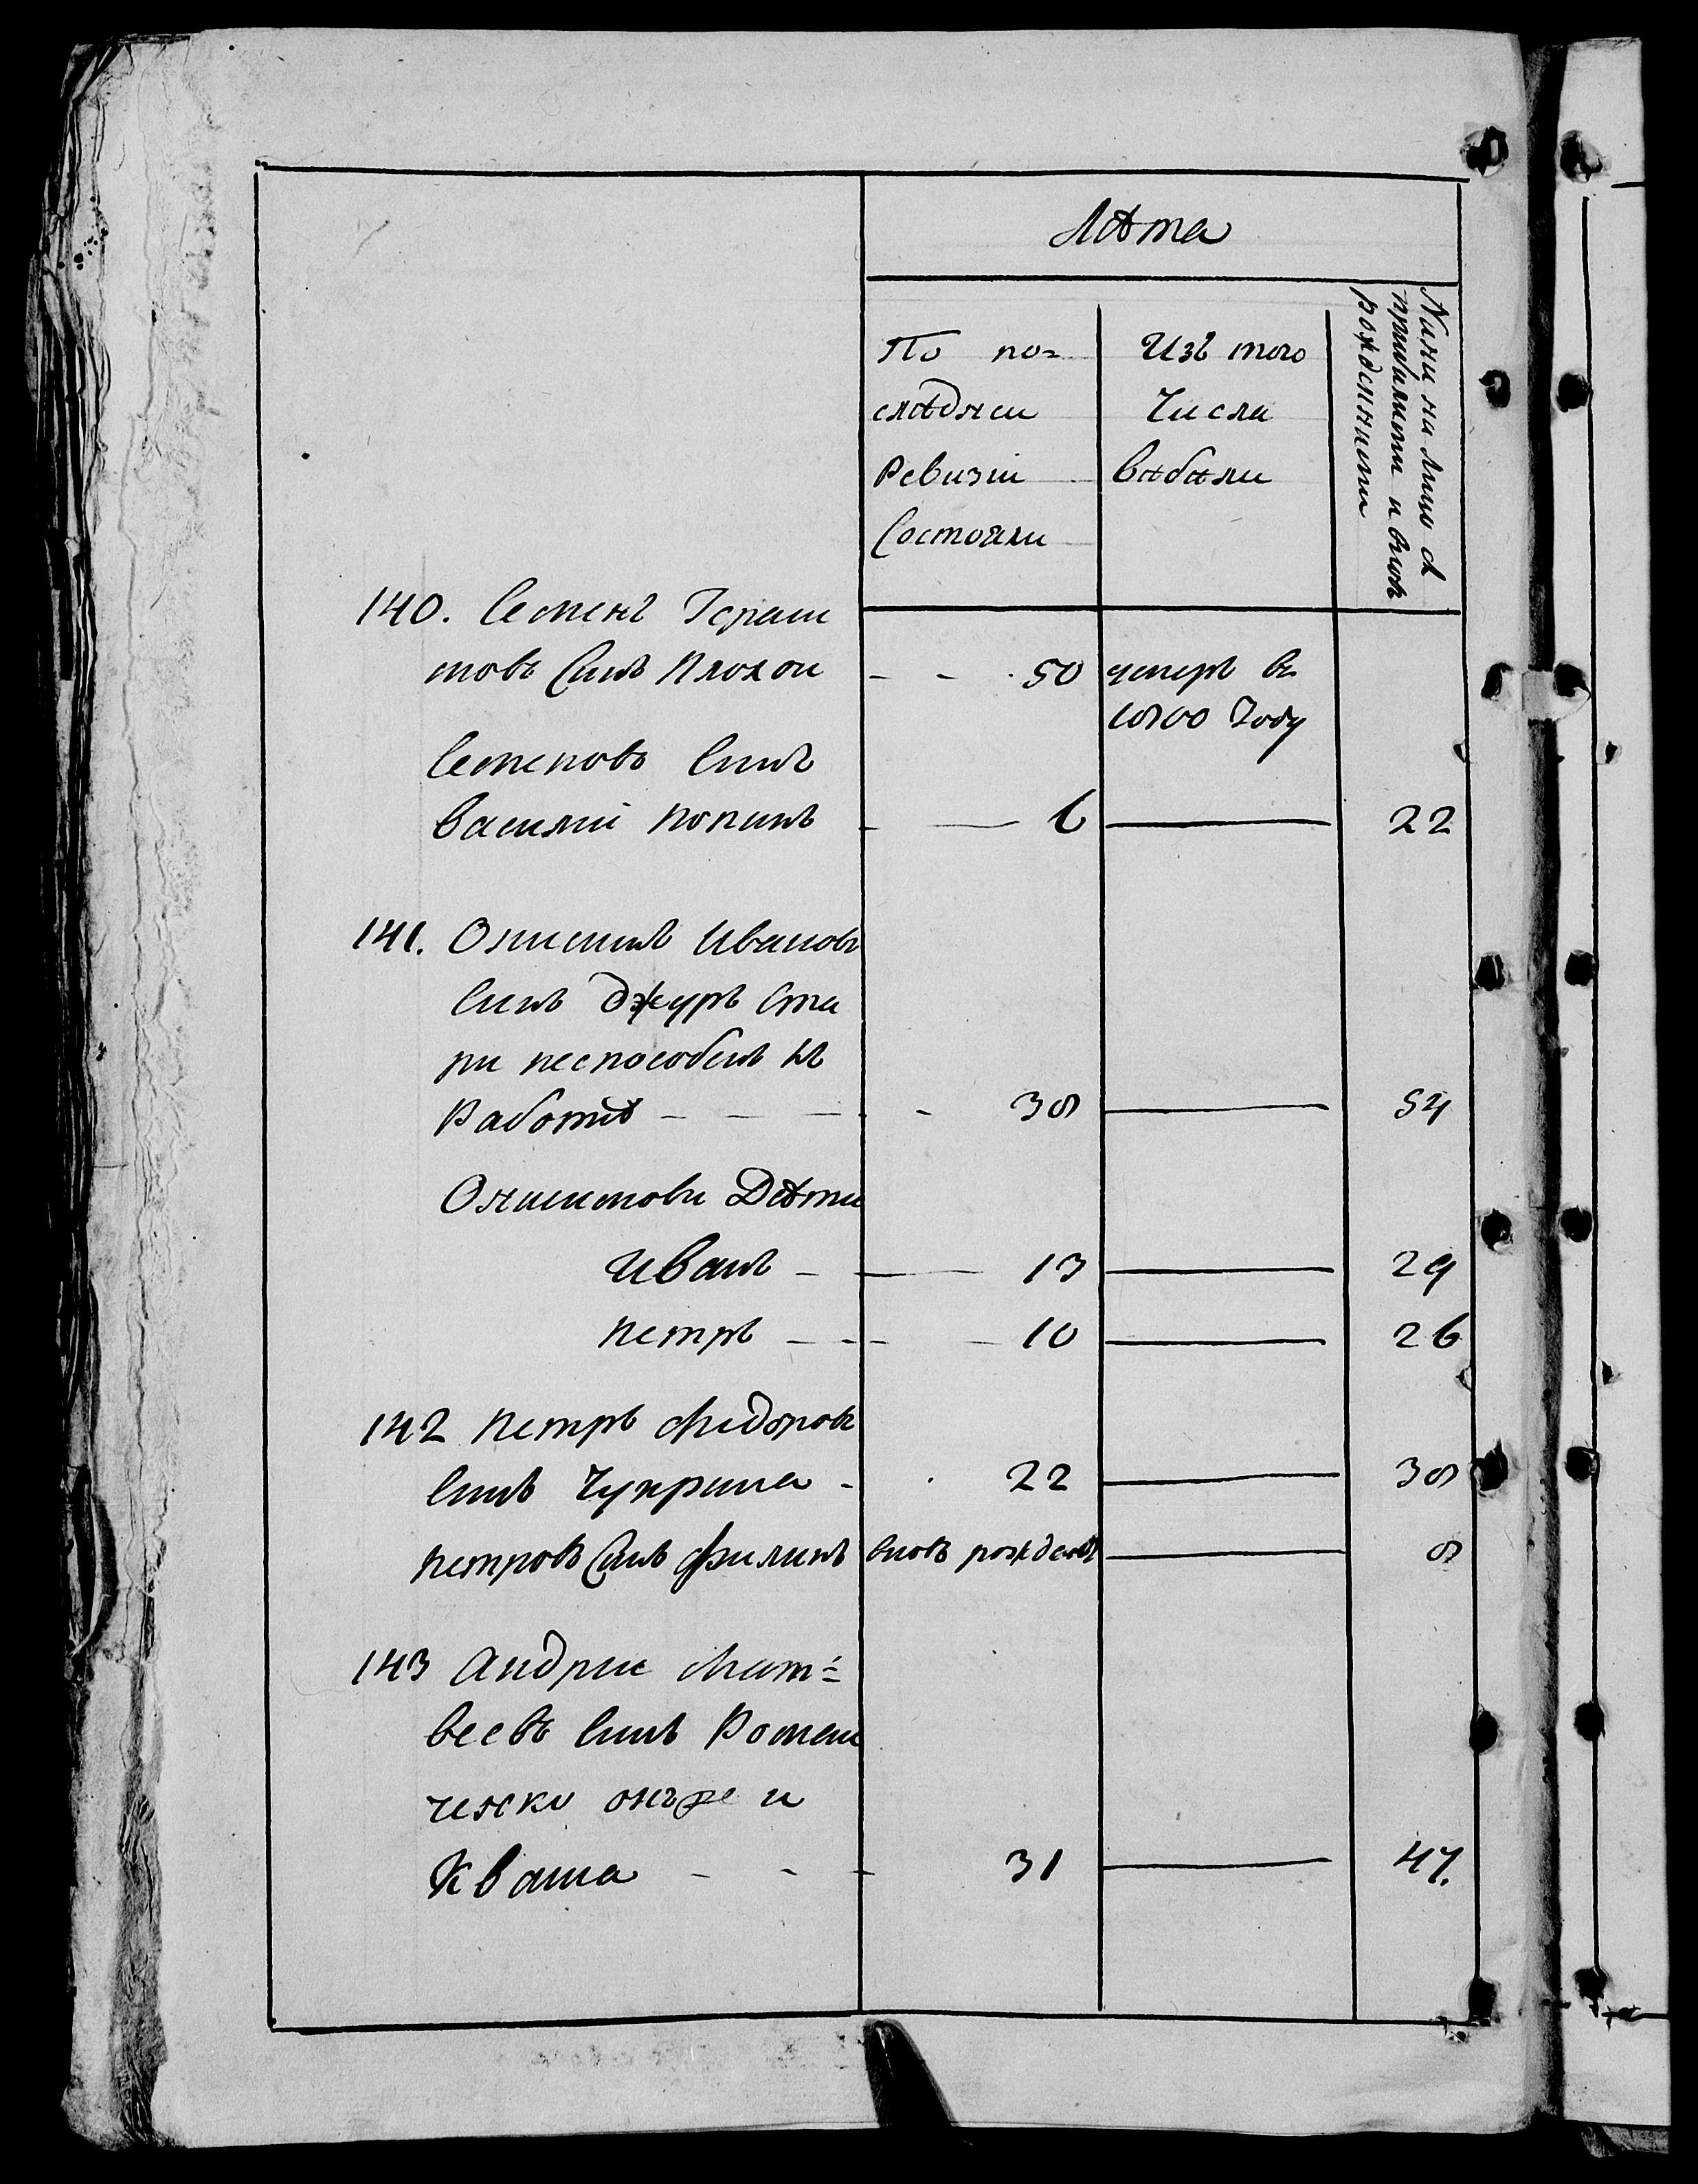 Лѣта
По по=
слѣднеи
Ревизіи
Состояли
Изъ того
Числа
выбыли
Нине на лицо с
прибилими и вновь
рожденними
140. Семенъ Гераси
мовъ Синъ Плохои - - 50 умеръ въ
1800 Году
Семеновъ Синъ
Василій — 6 — 22
141. Онисимъ Ивановъ
Синъ Джуръ Ста
ри неспособенъ къ
Работѣ - - - 38 — 54
Онисимови Дѣти
Иванъ - — 13 — 29
Петръ - - - 10 — 26
142 Петръ Федоровъ
Синъ Чуприна - 22 — 38
Петровъ Синъ Филипъ вновь рожденъ — 8
143 Андрие Мат=
веевъ Синъ Роман
ченко онъже и
Кваша - - - 31 — 47.